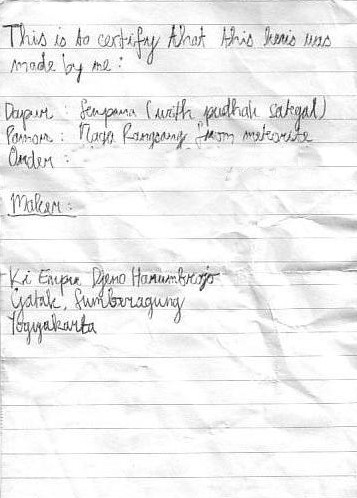 This is to certify that this keris was
made by me:
Dapur : Sempana (with pudhak sategal)
Pamor : Naga Rangsang from meteorite
Order :
Maker :
Ki Empu Djeno Harumbrojo
Gatak, Sumberagung
Yogyakarta